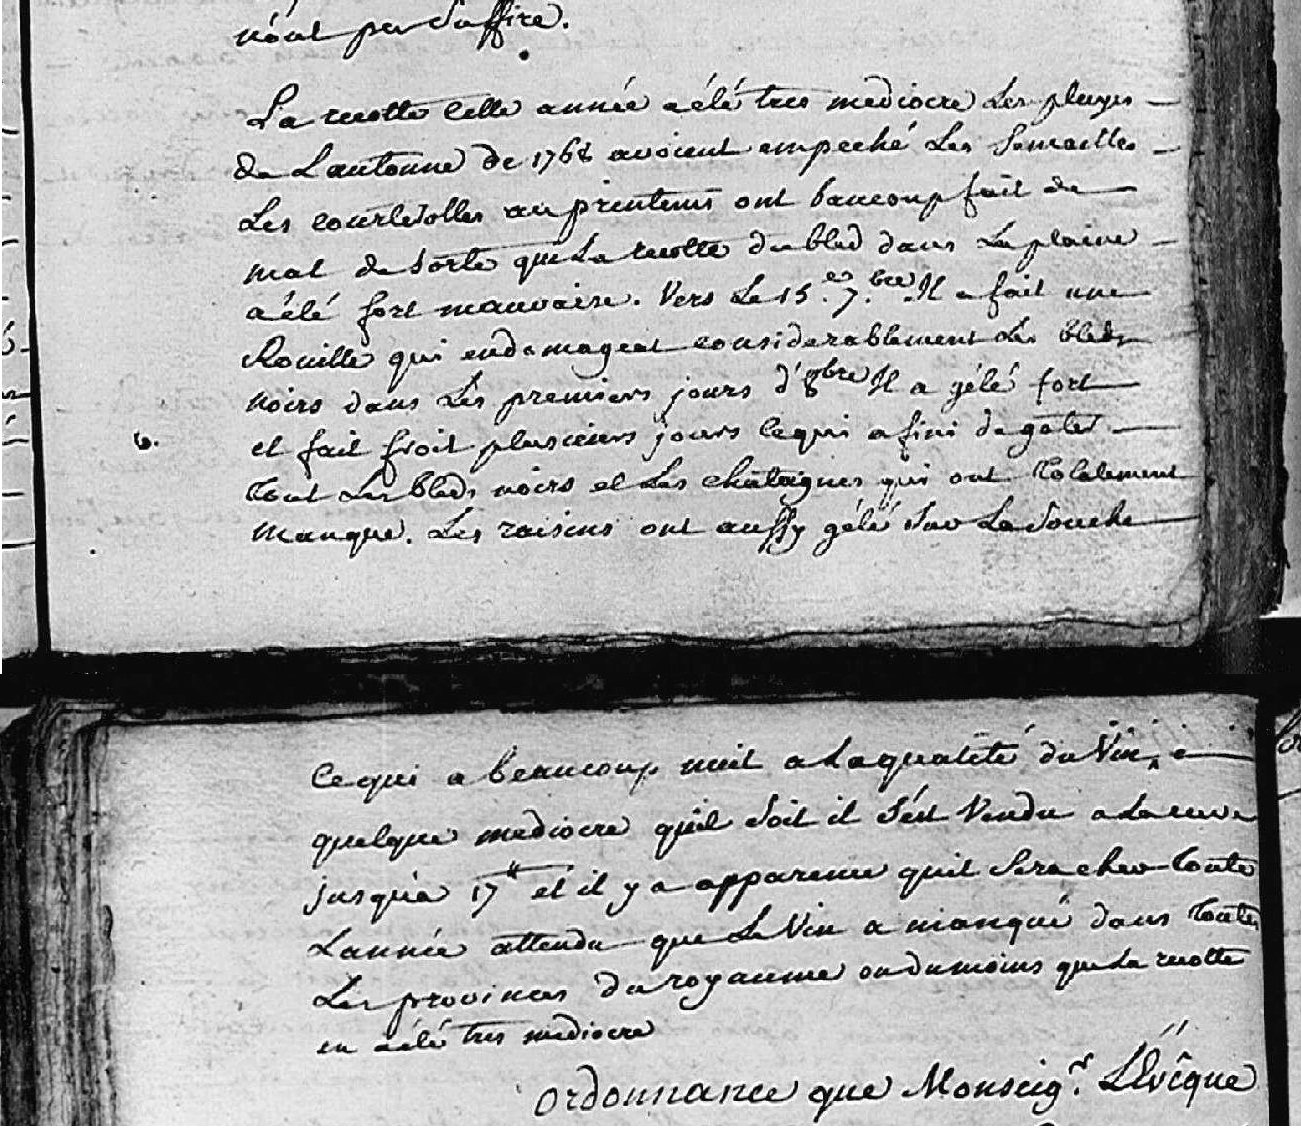 n'ont peu Suffire.
La recotte cette année a été tres mediocre Les pluyes
de L'automne de 1768 avoient empeché Les Semailles
Les courterolles au printems ont baucoup fait de
mal de Sorte que La recotte du bled dans La plaine
a été fort mauvaise. Vers Le 15.e 7.bre Il a fait une
Rouille qui endomageat considerablement Les bleds
noirs dans Les premiers jours d'8bre Il a gélé fort
6.
et fait froit plusieurs jours ce qui a fini de gater
tout Les bleds noirs et Les chataignes qui ont totalement
manque. Les raisins ont aussy gélé sur La Souche
Ce qui a beaucoup nuit a La qualité du Vin
quelque mediocre quil Soit il S'est Vendu a La cuve
jusqu'a 17tt et il y a apparence quil Sera cher toute
L'année attendu que Le Vin a manqué dans toutes
Les provinces du royaume ou du moins que La recotte
en a été tres mediocre
ordonnance que Monseigr. L'Evêque